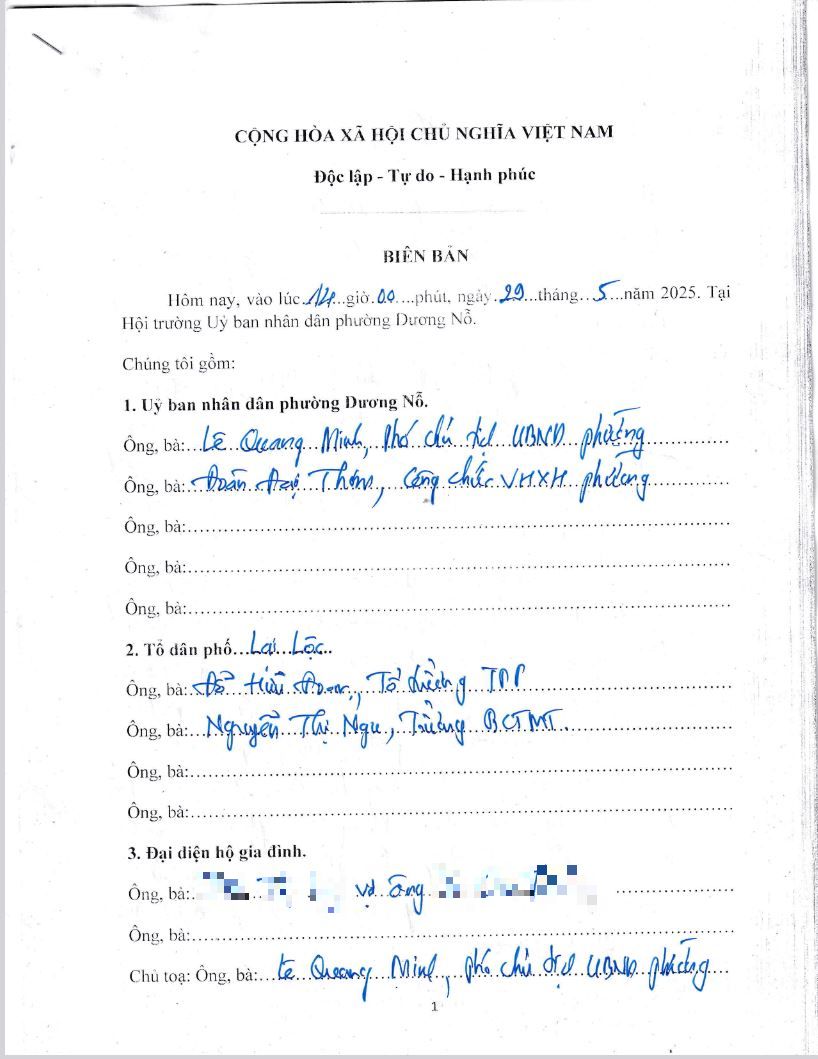 CỘNG HÒA XÃ HỘI CHỦ NGHĨA VIỆT NAM
Độc lập - Tự do - Hạnh phúc
BIÊN BẢN
Hôm nay, vào lúc 14 giờ 00 phút, ngày 29 tháng 5 năm 2025. Tại
Hội trường Uỷ ban nhân dân phường Dương Nỗ.
Chúng tôi gồm:
1. Uỷ ban nhân dân phường Dương Nỗ.
Ông, bà: Lê Quang Minh, Phó chủ tịch UBND phường
Ông, bà: Đoàn Thơm, Công chức VHXH phường
Ông, bà:
Ông, bà:
Ông, bà:
2. Tổ dân phố Lại Lộc
Ông, bà: Đỗ Hữu Tổ trưởng TDP
Ông, bà: Nguyễn Thị Trưởng BCTMT.
Ông, bà:
Ông, bà:
3. Đại diện hộ gia đình.
Ông, bà: ông
Ông, bà:
Chủ toạ: Ông, bà: Lê Quang Minh, phó chủ tịch UBND phường
1